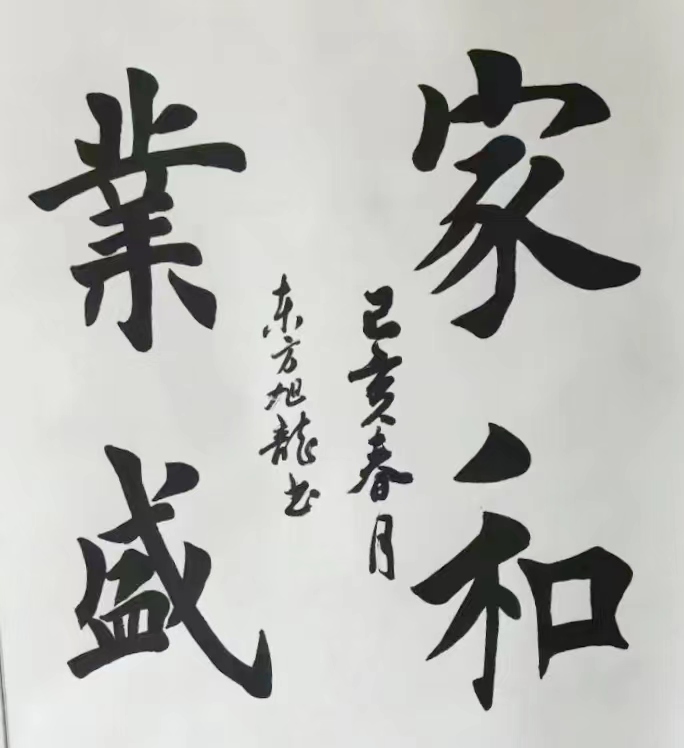 家和
己亥春月
东方旭龍书
業盛